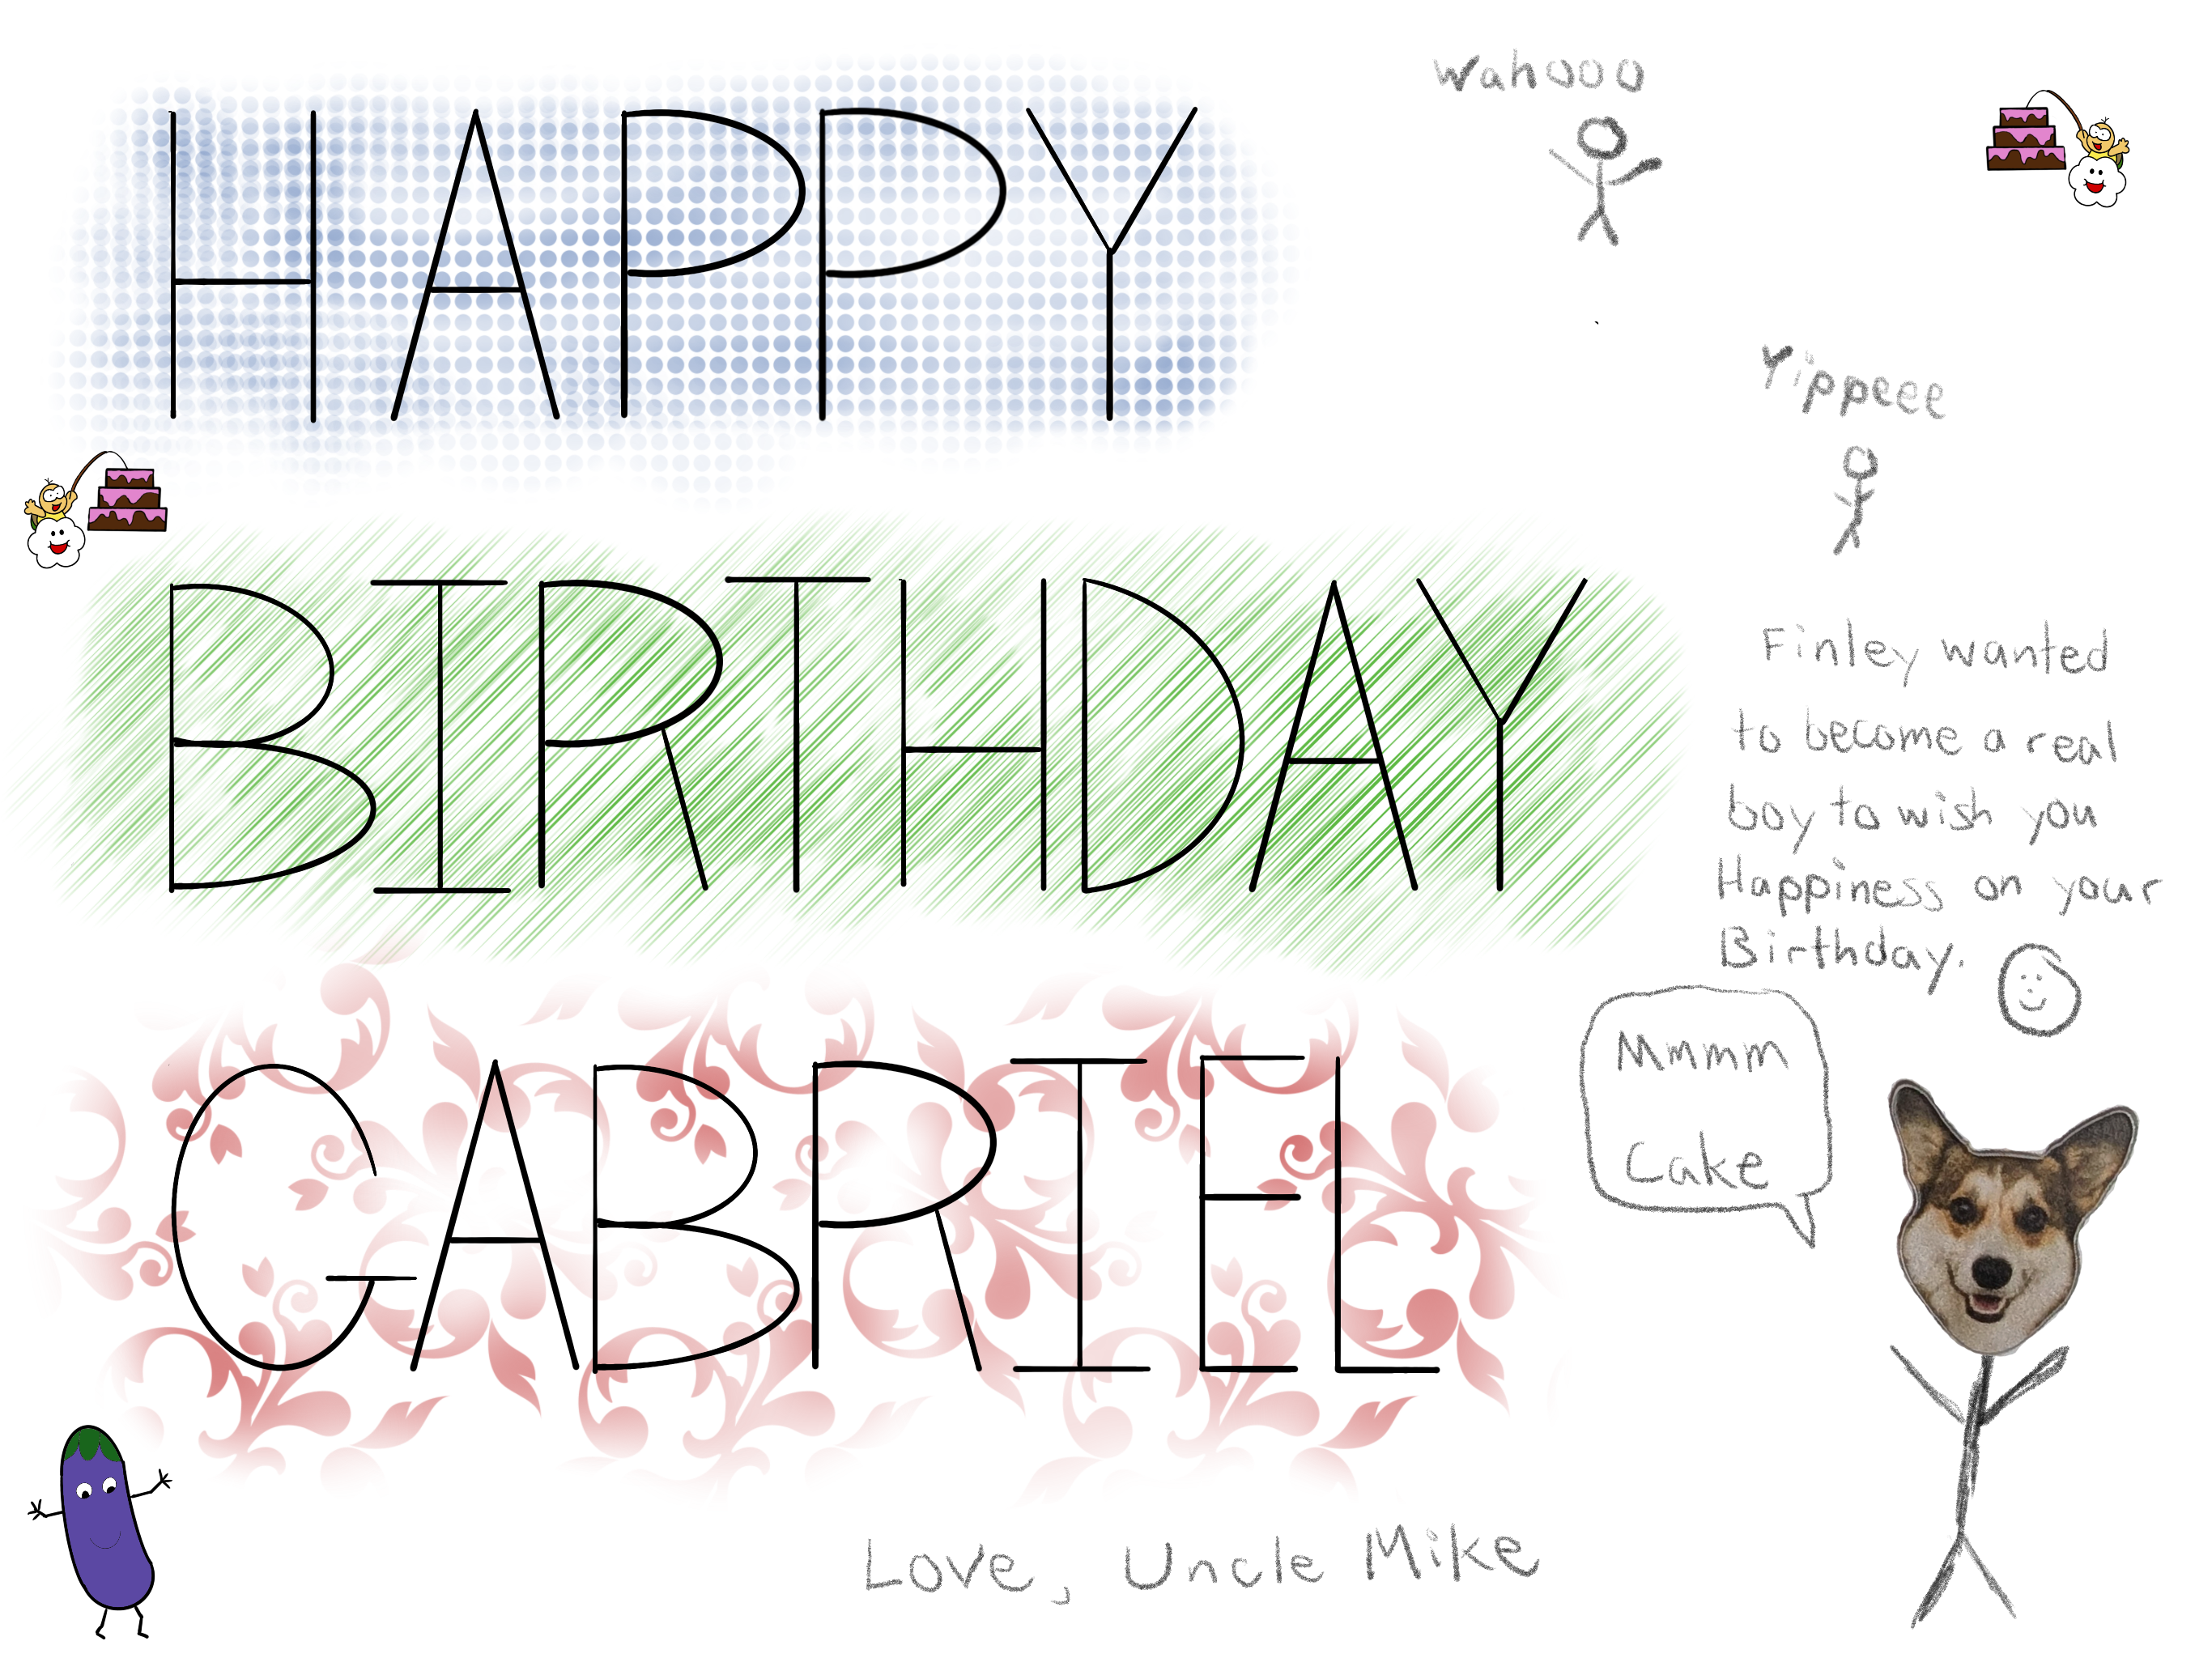 HAPPY
BIRTHDAY
GABRIEL
Wahooo
Yippeee
Finley wanted
to become a real
boy to wish you
Happiness on your
Birthday.
Mmmm
Cake
Love, Uncle Mike